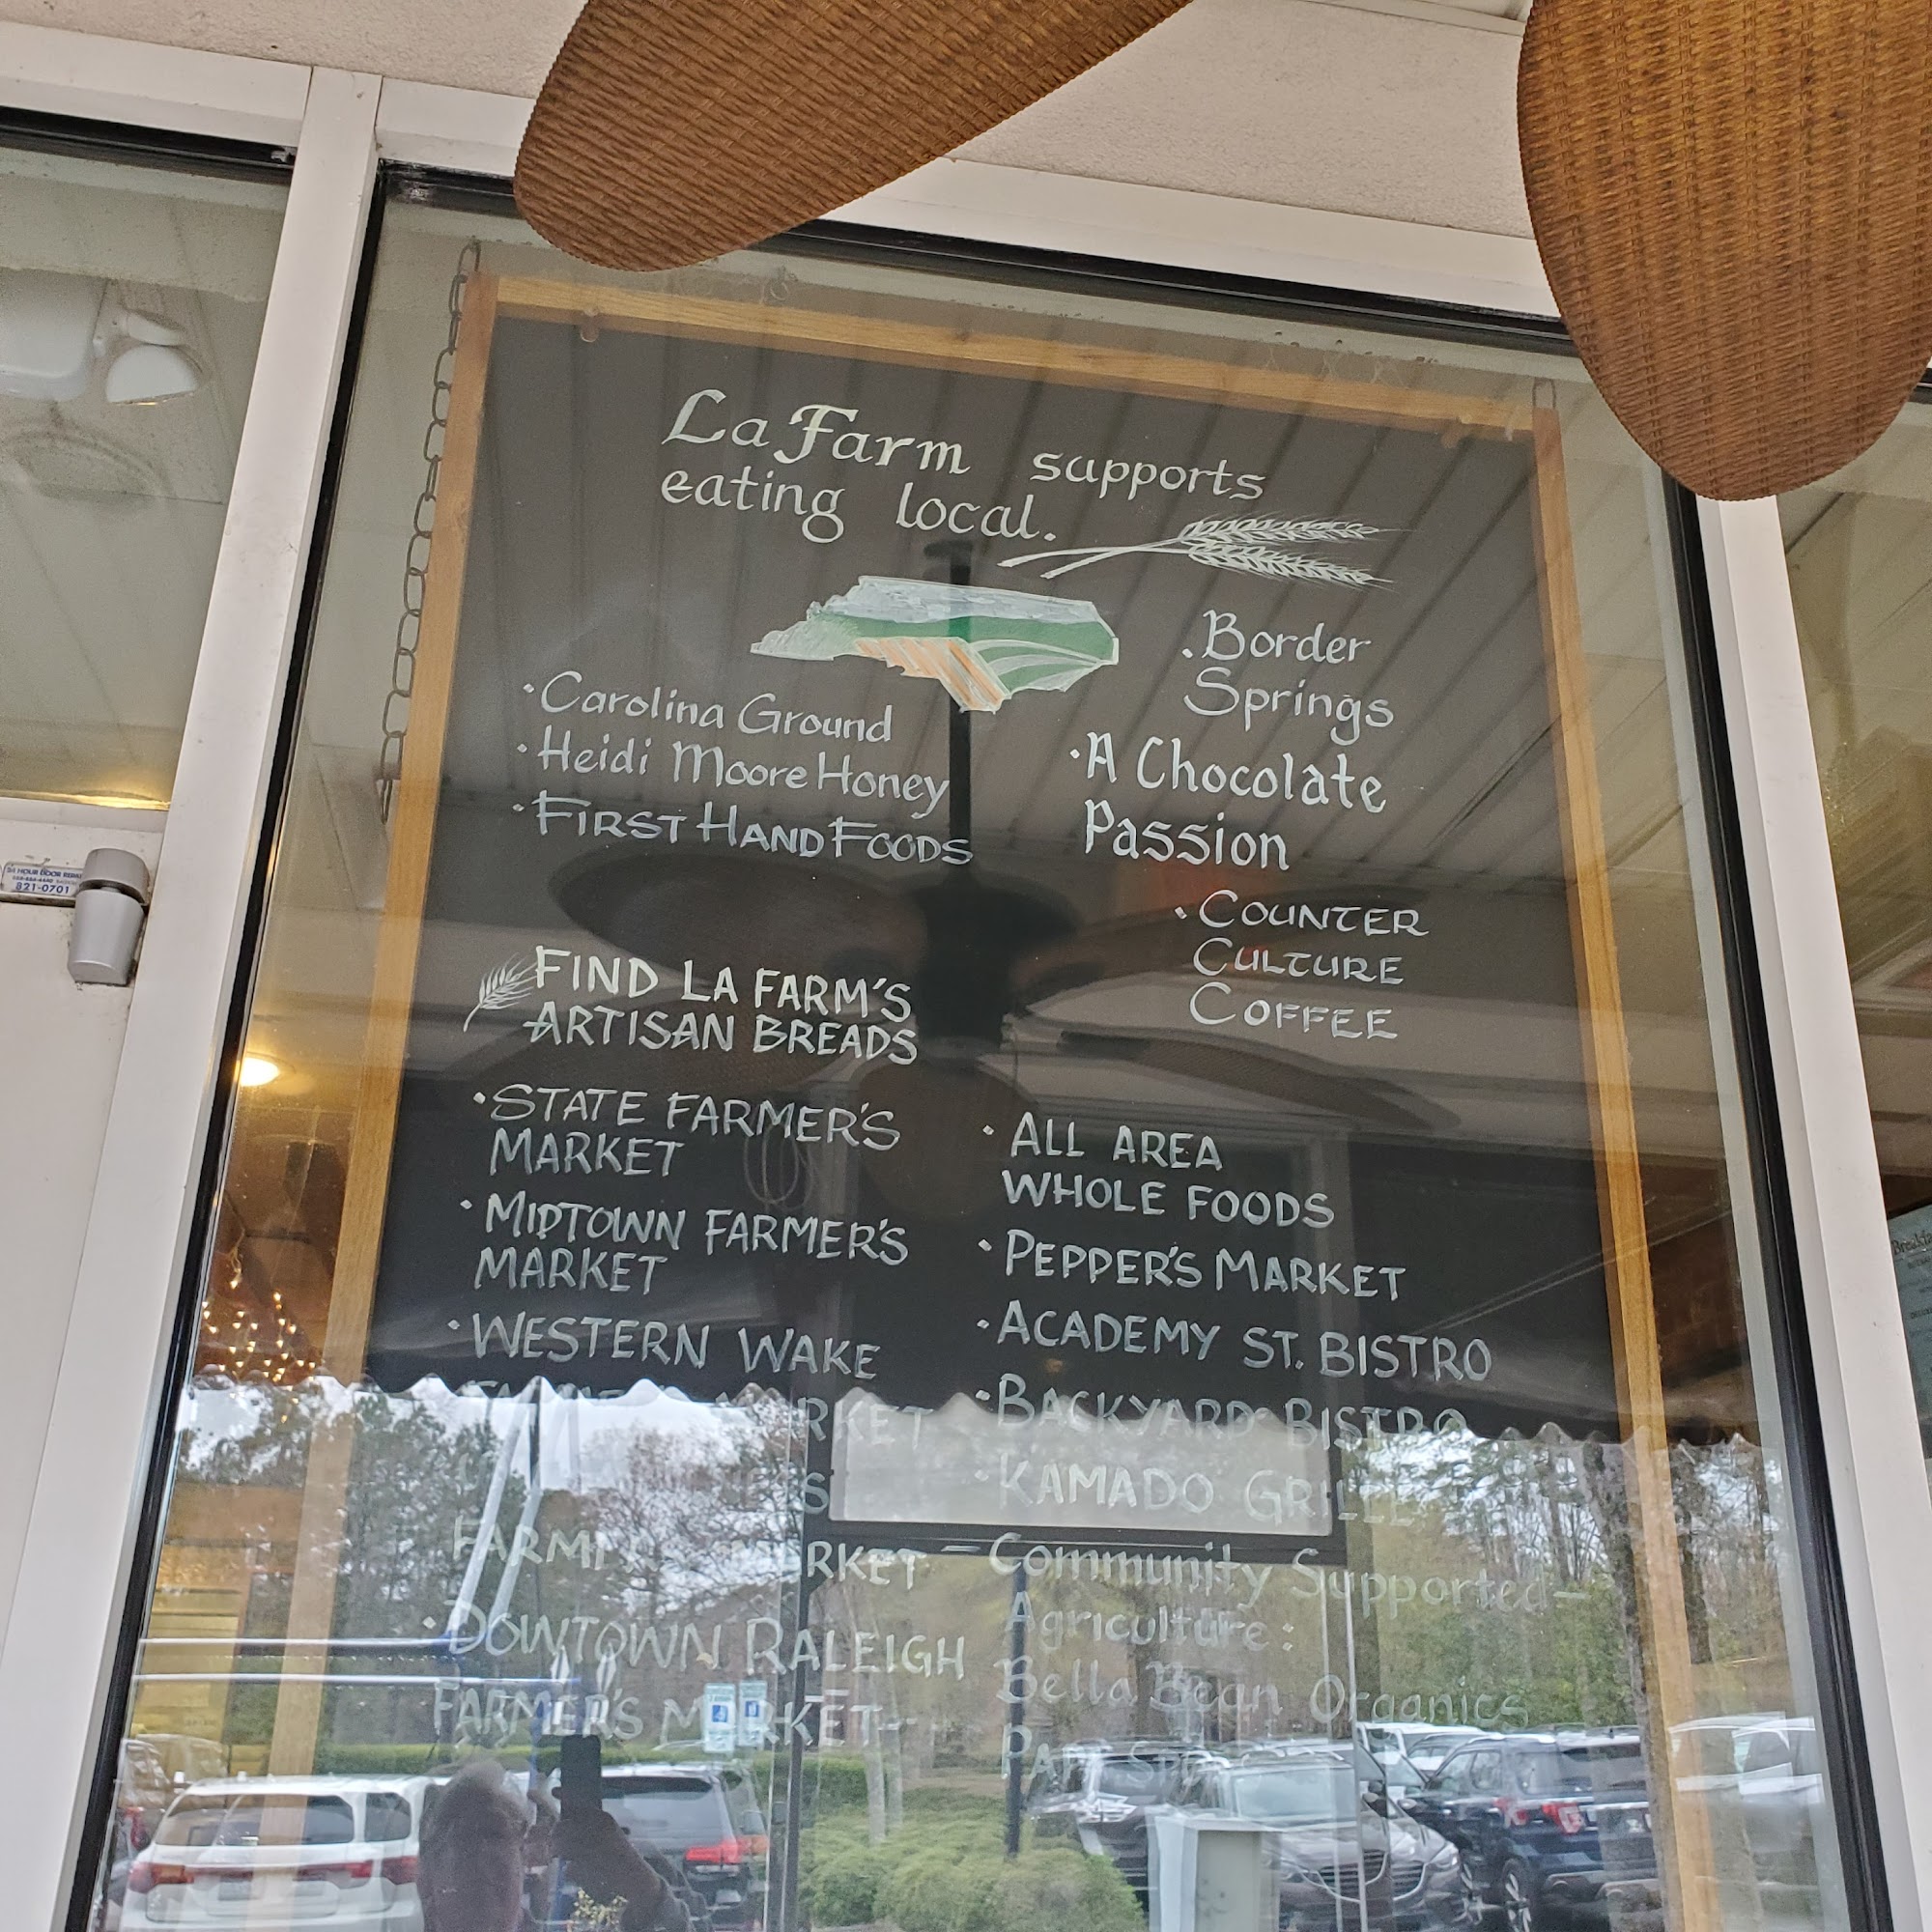 La Farm supports
eating local.
·Border
Springs
·Carolina Ground
·Heidi Moore Honey
·FIRST HAND FOODS
·A Chocolate
Passion
·COUNTER
CULTURE
COFFEE
FIND LA FARM'S
ARTISAN BREADS
·STATE FARMER'S
MARKET
·MIDTOWN FARMER'S
MARKET
·WESTERN WAKE
MARKET
MARKET
·DOWTOWN RALEIGH
FARMER'S MARKET
·ALL AREA
WHOLE FOODS
·PEPPER'S MARKET
·ACADEMY ST. BISTRO
·BACKYARD BISTRO
·KAMADO GRILLE
-Community Supported-
Agriculture:
Bella Bean Organics
24 HOUR DOOR REPAIR
821-0701